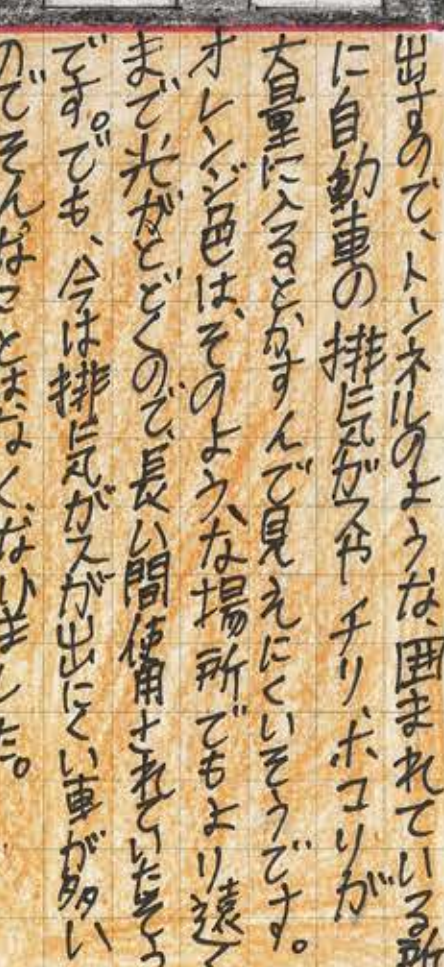 出すので、トンネルのような、囲まれている所
に自動車の排気ガスや チリ、ホコリが
大量に入るとかすんで見えにくいそうです。
オレンジ色は、そのような場所でもより遠く
まで光がとどくので、長い間使用されていたそう
です。でも、今は排気ガスが出にくい車が多い
のでそんなことはなくなりました。